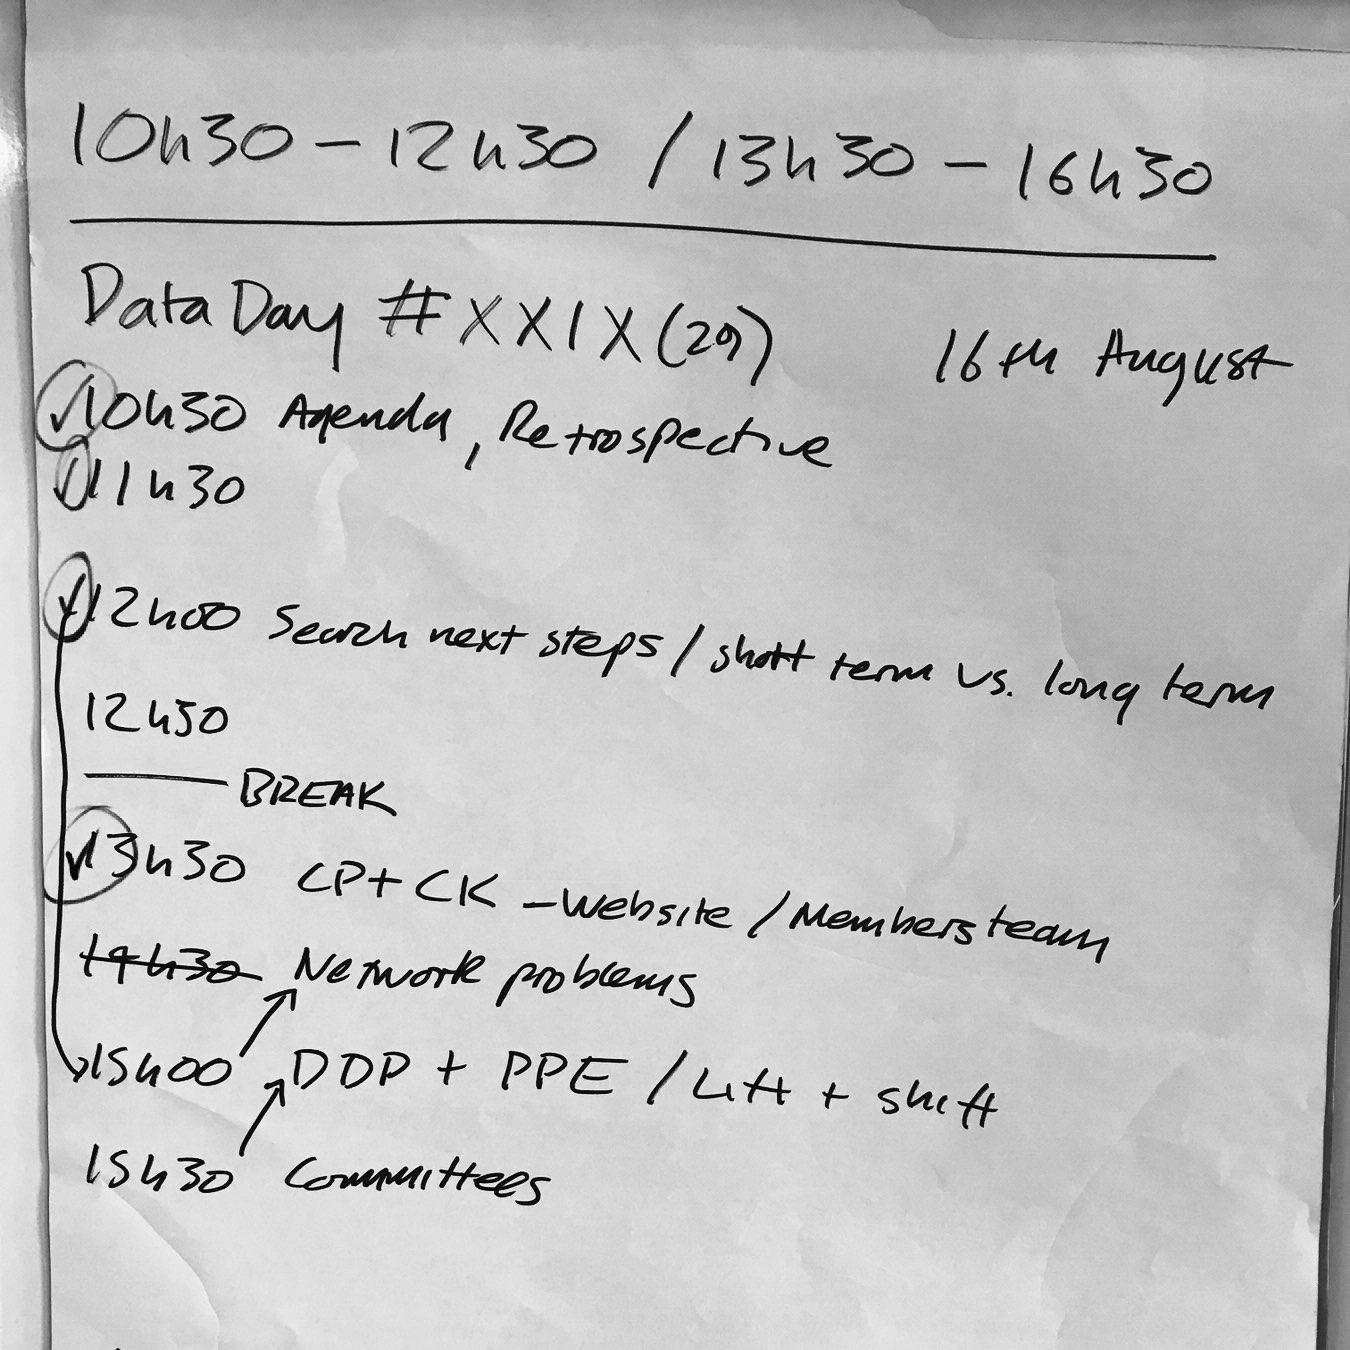 10h30 – 12h30 / 13h30 – 16h30
Data Day # XXIX (29) 16th August
✓10h30 Agenda, Retrospective
✓11h30
✓12h00 Search next steps / short term vs. long term
12h30
BREAK
✓13h30 CP + CK – Website / Members team
14h30 Network problems
15h00 DDP + PPE / Lift + shift
15h30 Committees